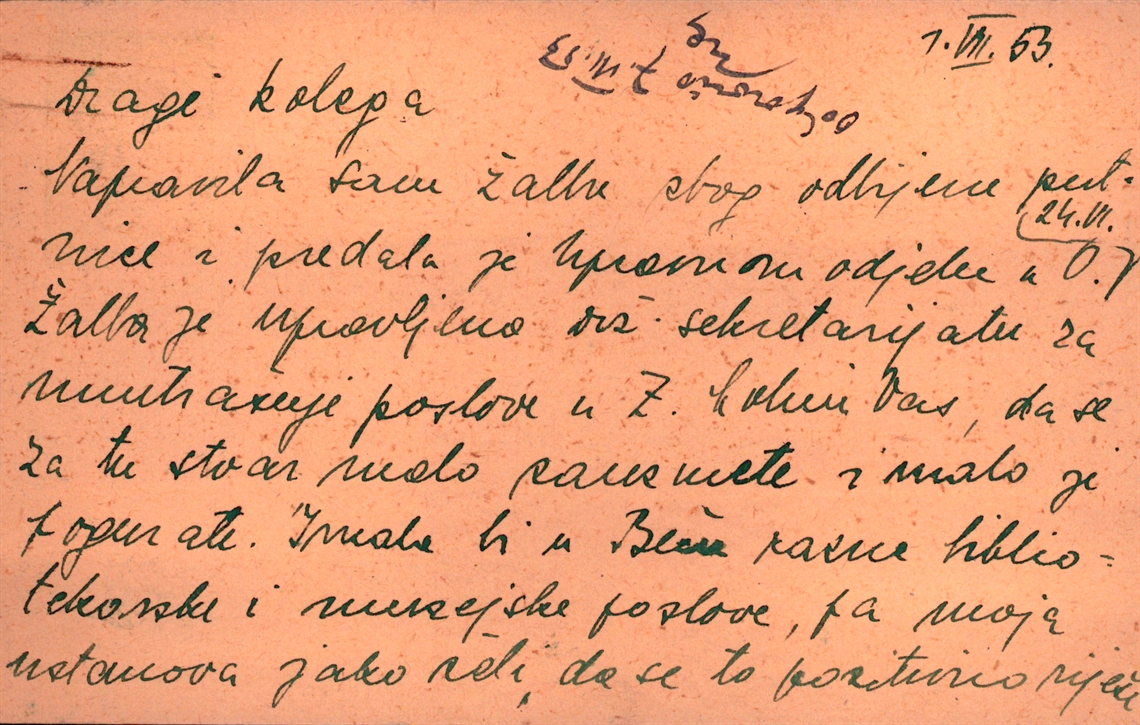 1. VII. 53.
Odgovoreno 7. VII. 53
Dragi kolega
Napravila sam žalbu zbog odbijene put-
24. VI.
nice i predala je Upravnom odjelu u O.
Žalba je upravljena Drž. sekretarijatu za
unutrašnje poslove u Z. Molim Vas, da se
za tu stvar malo zauzmete i malo je
pogurate. Imala bi u Beču razne biblio=
tekarske i muzejske poslove, pa moja
ustanova jako želi, da se to pozitivno riješi